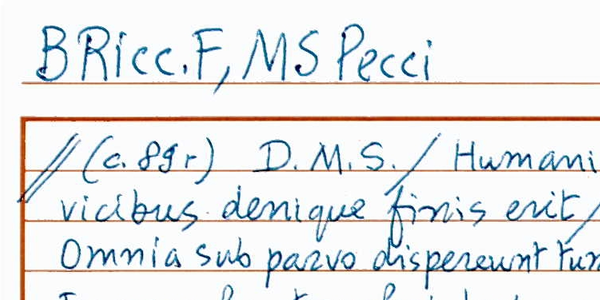 BRicc.F, MS Pecci
// (c. 89r) D.M.S. / Humani
vicibus denique finis erit /
Omnia sub parvo dispereunt tum